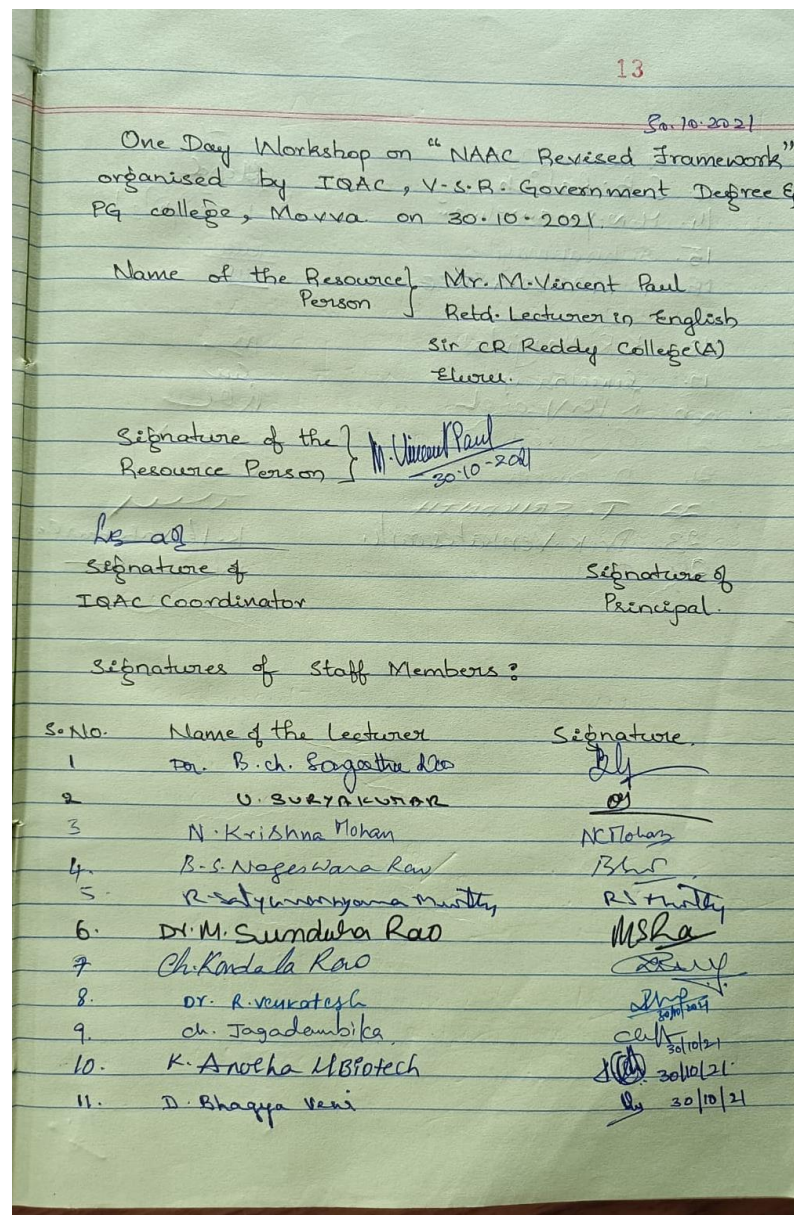 13
30.10.2021
One Day Workshop on "NAAC Revised Framework"
organised by IQAC, V.S.R. Government Degree &
PG college, Movva on 30.10.2021.
Name of the Resource } Mr. M. Vincent Paul
Person Retd. Lecturer in English
Sir CR Reddy College(A)
Eluru.
Signature of the } M. Vincent Paul
Resource Person 30-10-2021
Signature of Signature of
IQAC Coordinator Principal.
Signatures of Staff Members:
S.No. Name of the Lecturer Signature.
1 Dr. B.ch.
2 U. SURYAKUMAR
3 N. Krishna Mohan NCMohan
4. B.S. Nageswara Rao
5. R. Satyanarayana Murthy RS Murthy
6. Dr. M. Sunduha Rao MSRa
7 Ch. Kondala Rao
8. Dr. R. Venkatesh 30/10/2021
9. ch. Jagadambika 30/10/21
10. K. 30/10/21.
11. D. Bhagya Veni 30/10/21